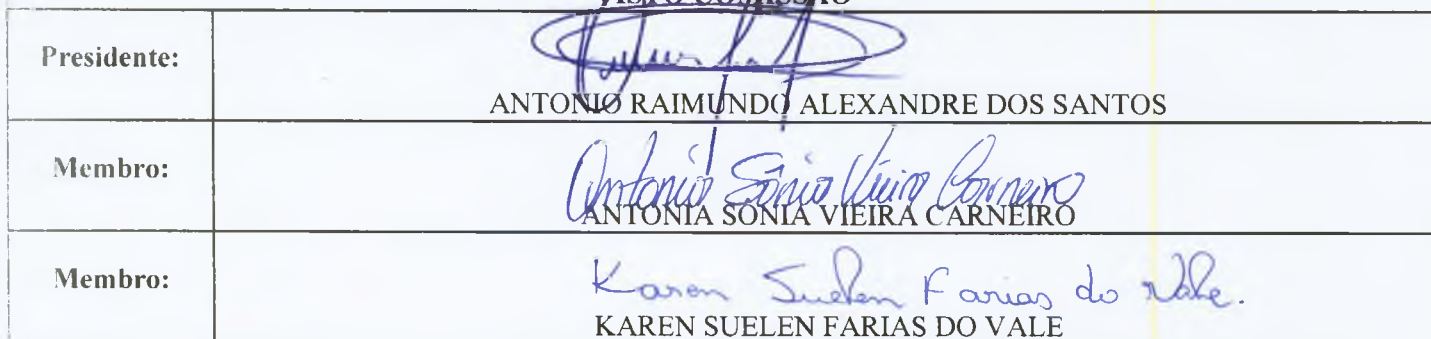 VISTO COMISSÃO
Presidente:
ANTONIO RAIMUNDO ALEXANDRE DOS SANTOS
Membro:
Antonia Sônia Vieira Carneiro
ANTONIA SONIA VIEIRA CARNEIRO
Membro:
Karen Suelen Farias do Vale.
KAREN SUELEN FARIAS DO VALE